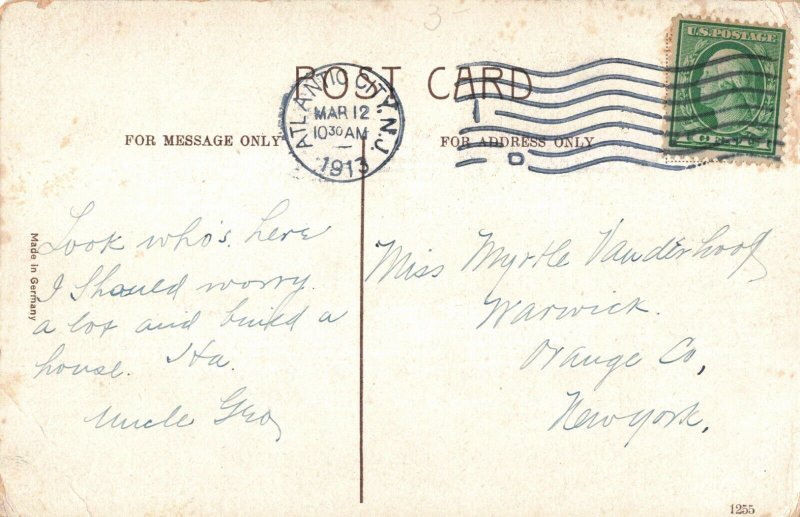 3
U.S. POSTAGE
POST CARD
ATLANTIC CITY, N.J.
MAR 12
10 30 AM
1913
FOR MESSAGE ONLY
FOR ADDRESS ONLY
Made in Germany
Look who's here
I Should worry.
a lot and build a
house. Ha.
Uncle Geo
Miss Myrtle Vanderhoof
Warwick.
Orange Co,
New York.
1255